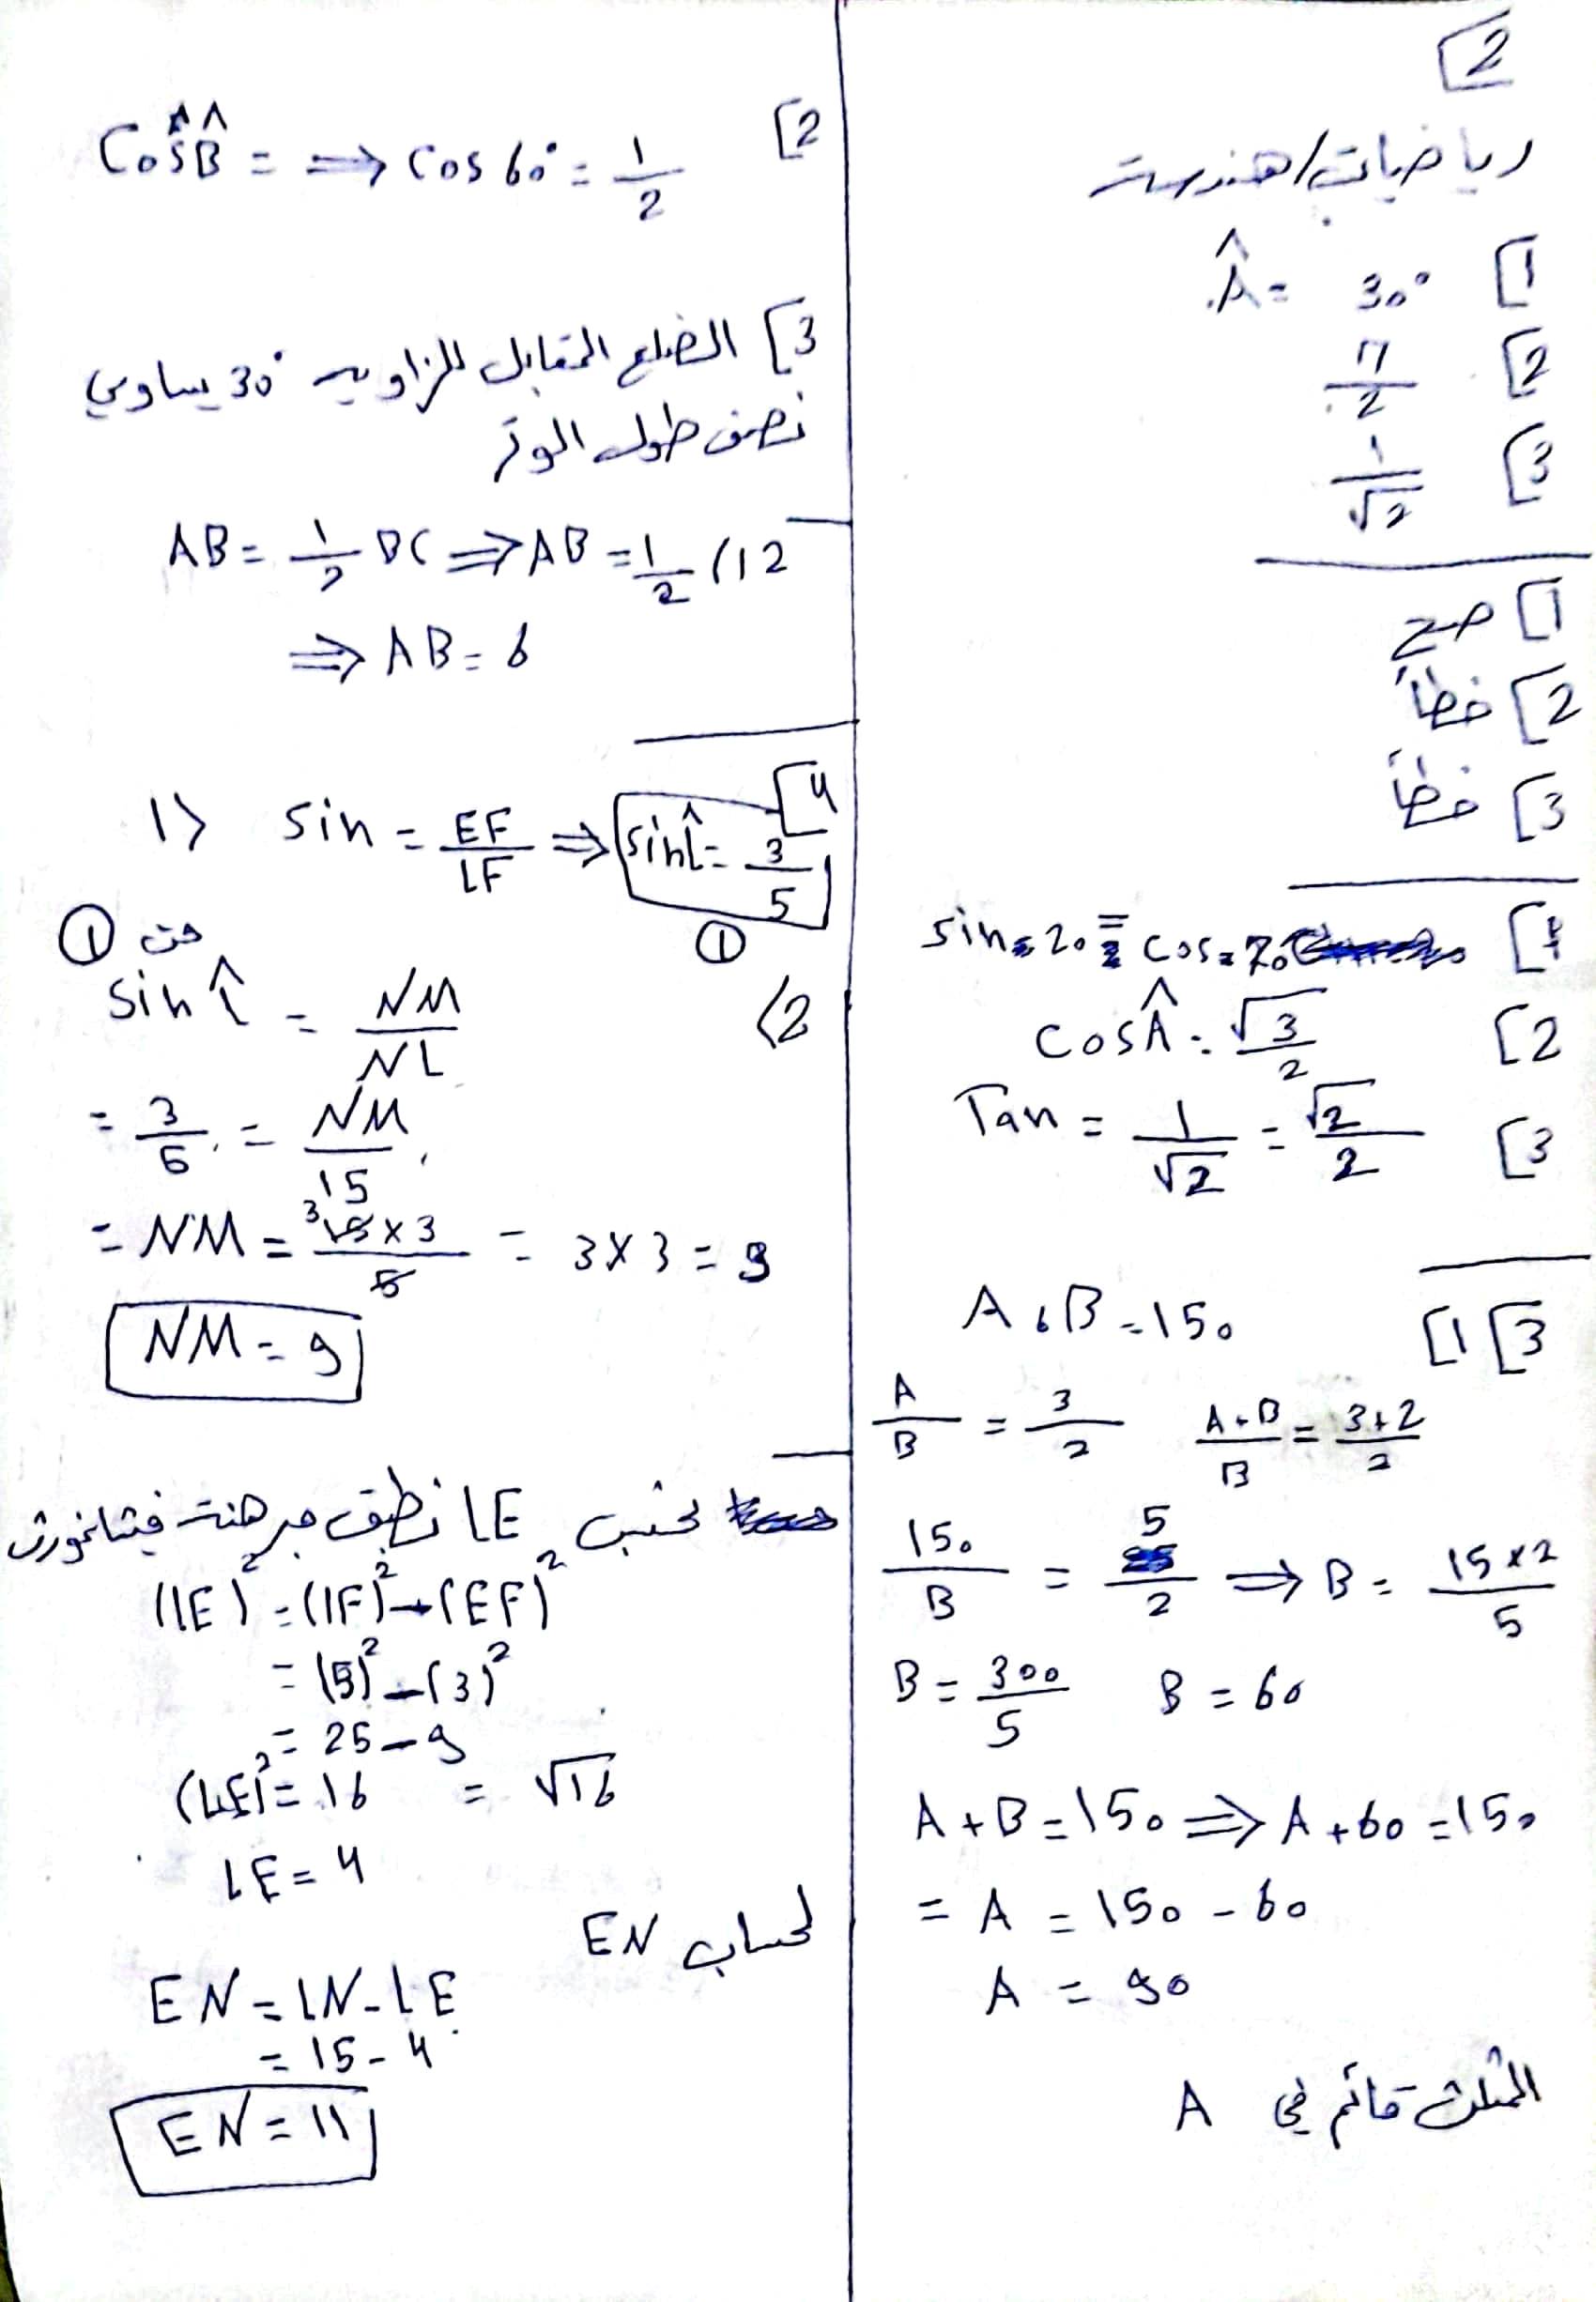 [2
رياضيات/هندسة
[1 Â = 30°
[2 17/2
[3 1/√2
[1 صح
[2 خطأ
[3 خطأ
sin = 20 = cos = 70
[2 cos Â = √3/2
[3 Tan = 1/√2 = √2/2
[3 [1 A , B = 150
A/B = 3/2 A+B/B = 3+2/2
150/B = 5/2 ⇒ B = 15×2/5
B = 300/5 B = 60
A + B = 150 ⇒ A + 60 = 150
= A = 150 - 60
A = 90
المثلث قائم في A
[2 Cos B̂ = ⇒ Cos 60° = 1/2
[3 الضلع المقابل للزاويه 30° يساوي
نصف طول الوتر
AB = 1/2 BC ⇒ AB = 1/2 (12
⇒ AB = 6
[4
1> sin = EF/LF ⇒ sin L̂ = 3/5 ①
من ①
(2 sin L̂ = NM/NL
= 3/5 = NM/15
= NM = 15×3/5 = 3×3 = 9
NM = 9
نحسب LE نطبق مبرهنة فيثاغورث
(LE)² = (LF)² - (EF)²
= (5)² - (3)²
= 25 - 9
(LE)² = 16 = √16
LE = 4
لحساب EN
EN = LN - LE
= 15 - 4
EN = 11